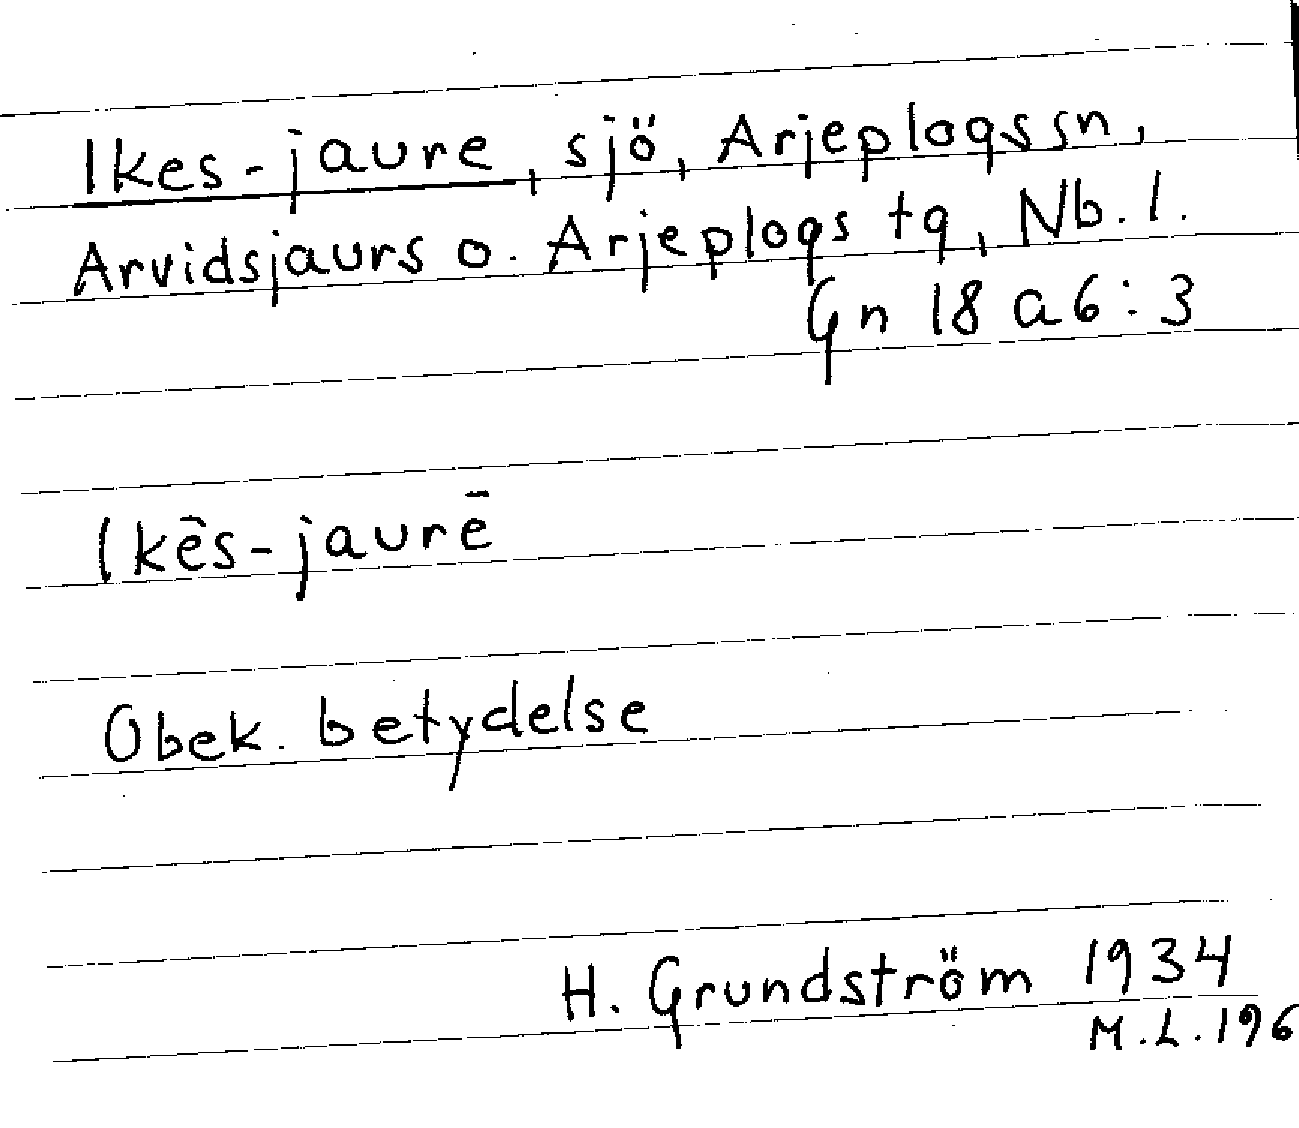 Ikes-jaure, sjö, Arjeplogs sn,
Arvidsjaurs o. Arjeplogs tg, Nb. l.
Gn 18 a 6:3
Ikēs-jaurē
Obek. betydelse
H. Grundström 1934
M.L.196